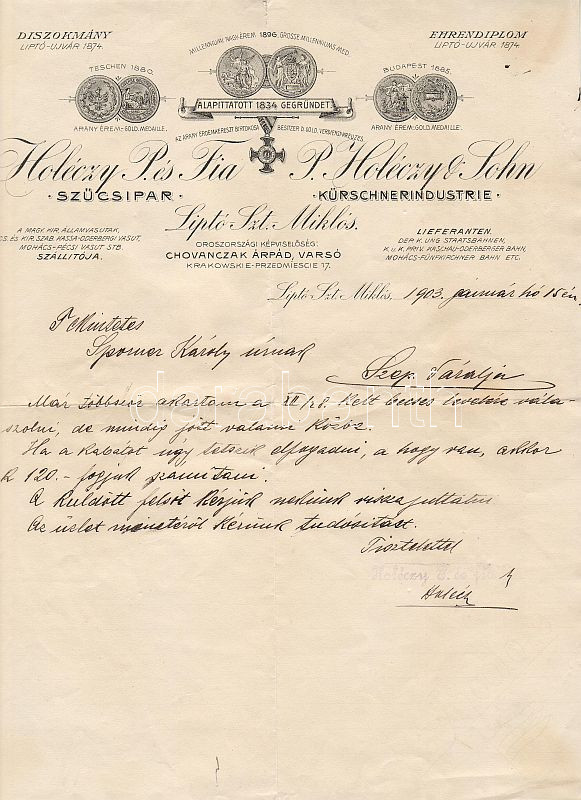 DISZOKMÁNY
LIPTÓ-UJVÁR 1874.
MILLENIUMI NAGY ÉREM 1896. GROSSE MILLENIUMS MED.
EHRENDIPLOM
LIPTÓ-UJVÁR 1874.
TESCHEN 1880.
BUDAPEST 1885.
ALAPITTATOTT 1834 GEGRÜNDET
ARANY ÉREM.-GOLD. MEDAILLE.
AZ ARANY ÉRDEMKERESZT BIRTOKOSI
BESITZER D. GOLD. VERDIENSTKREUZES.
ARANY ÉREM.-GOLD. MEDAILLE.
Holéczy P. és Fia
P. Holéczy & Sohn
· SZÜCSIPAR ·
· KÜRSCHNERINDUSTRIE ·
Liptó Szt. Miklós.
A MAGY. KIR. ÁLLAMVASUTAK,
CS. ÉS KIR. SZAB. KASSA-ODERBERGI VASUT,
MOHÁCS-PÉCSI VASUT STB.
SZÁLLITÓJA.
OROSZORSZÁGI KÉPVISELŐSÉG:
CHOVANCZAK ÁRPÁD, VARSÓ
KRAKOWSKIE-PRZEDMIESCIE 17.
LIEFERANTEN.
DER K. UNG STAATSBAHNEN,
K. u. K. PRIV. KASCHAU-ODERBERGER BAHN,
MOHÁCS-FÜNFKIRCHNER BAHN ETC.
Liptó Szt. Miklós, 1903. január hó 15 én
Károly úrnak
Szep. Táralja
Már többször akartam a XII/28. kelt becses levelére vála-
szolni, de mindig jött valami közbe.
Ha a kabátot úgy tetszik elfogadni, a hogy van, akkor
120.- fogjuk számitani.
A küldött felsőt kérjük nekünk vissza juttatni
Az üzlet menetéről kérünk tudósitást.
Tisztelettel
Holéczy P. és Fia
darabanth